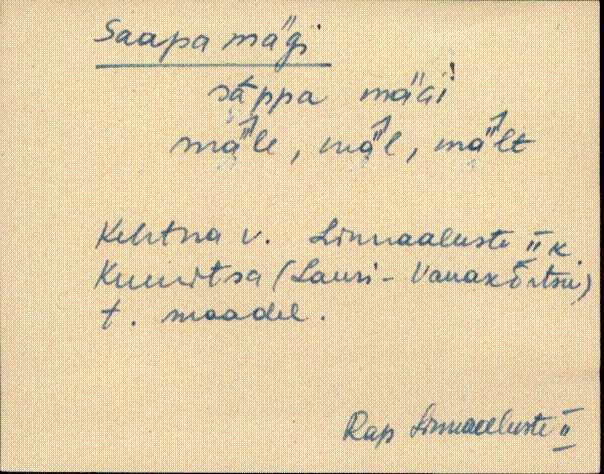 Saapa mägi
säppa mäGi
mä̀le, mä̀l, mä̀lt
Kehtna v. Linnaaluste II k.
Kuuritsa (Lauri-Vanakõrtsu)
t. maadel.
Rap Linnaaluste II